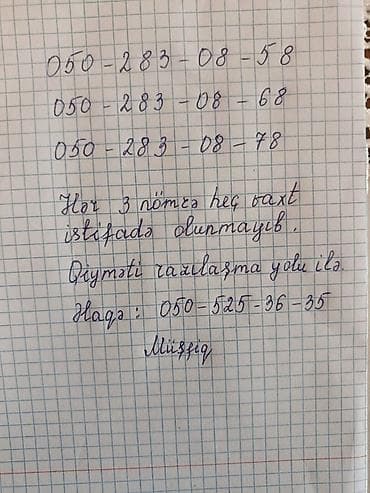 050-283-08-58
050-283-08-68
050-283-08-78
Hər 3 nömrə heç vaxt
istifadə olunmayıb.
Qiyməti razılaşma yolu ilə.
Əlaqə: 050-525-36-35
Müşfiq